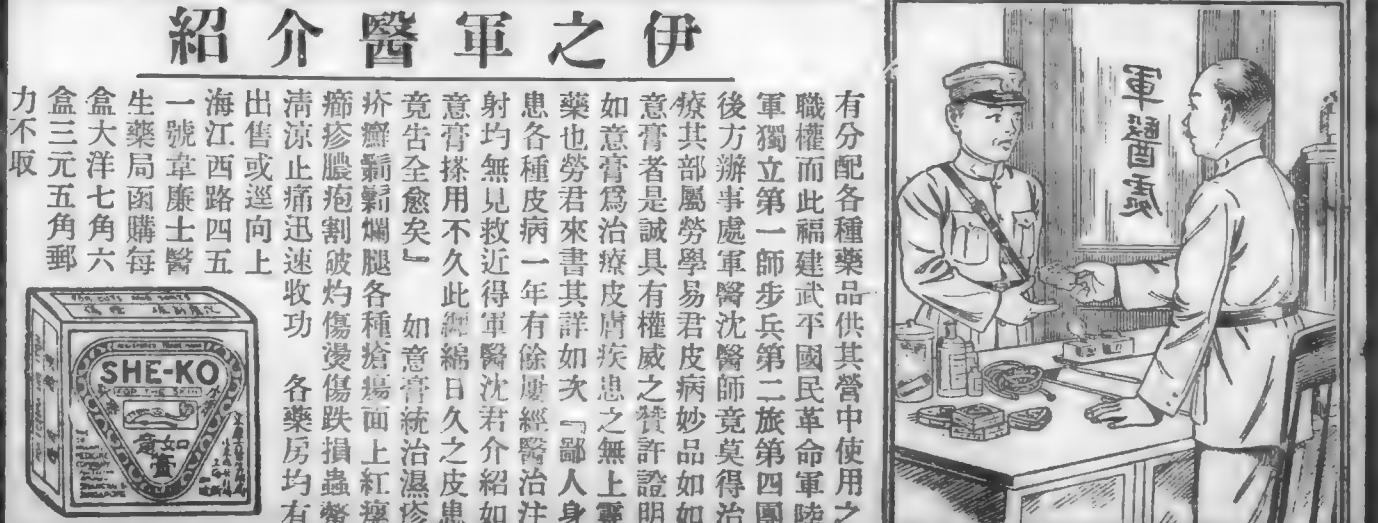 伊之軍醫介紹
軍醫處
有分配各種藥品供其營中使用之
職權而此福建武平國民革命軍陸
軍獨立第一師步兵第二旅第四團
後方辦事處軍醫沈醫師竟莫得治
療其部屬勞學易君皮病妙品如如
意膏者是誠具有權威之贊許證明
如意膏爲治療皮膚疾患之無上靈
藥也勞君來書其詳如次『鄙人身
患各種皮病一年有餘屢經醫治注
射均無見救近得軍醫沈君介紹如
意膏搽用不久此纏綿日久之皮患
竟告全愈矣』 如意膏統治濕疹
疥癬鬎鬁爛腿各種瘡瘍面上紅瘰
癤疹膿疱割破灼傷燙傷跌損蟲螫
淸凉止痛迅速收功 各藥房均有
出售或逕向上
海江西路四五
一號韋廉士醫
生藥局函購每
盒大洋七角六
盒三元五角郵
力不取
SHE-KO
FOR THE SKIN
如意膏